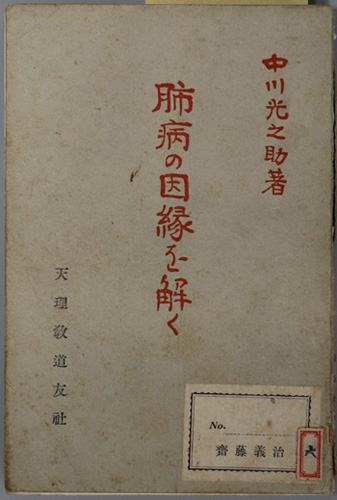 中川光之助著
肺病の因縁を解く
天理教道友社
No.
齋藤義治
六